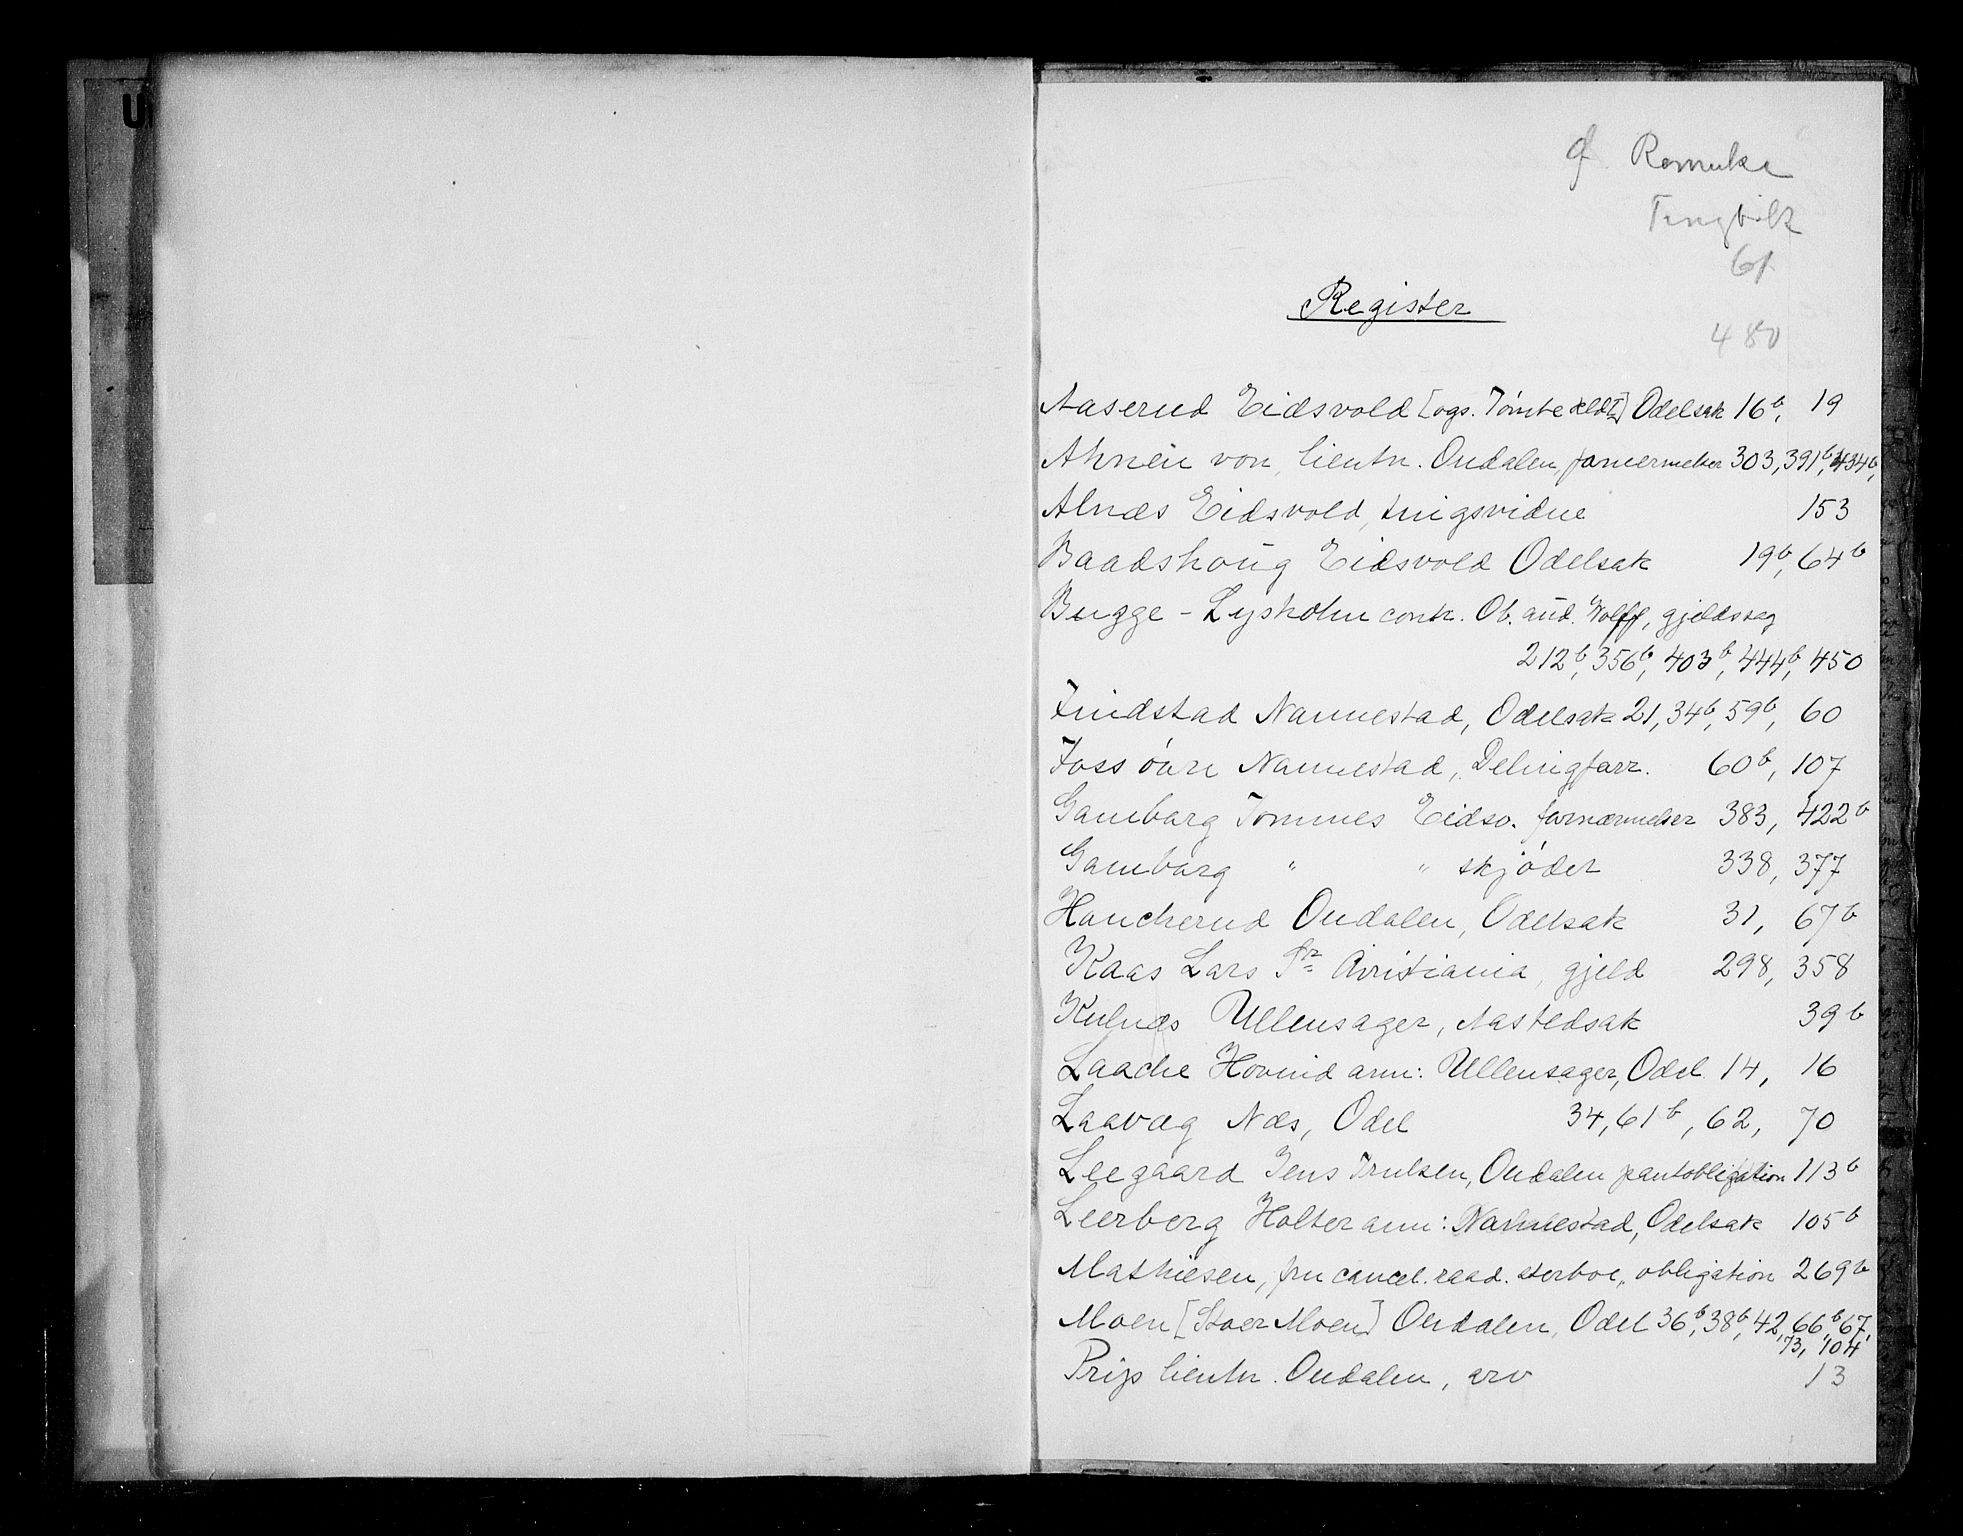 Ø. Romerike
Tingbok
61
Register
480
Aaserud Eidsvold [ogs. Tømte eldst] Odelsak 16b, 19
Ahnen von, lieutn. Oudalen, fornermelser 303, 391b, 434b,
Alnæs Eidsvold, tingsvidne 153
Baadshoug Eidsvold Odelsak 19b, 64b
Bugge - Lysholm contr. Ob. aud. Wolff, gjeldssag
212b, 356b, 403b, 444b, 450
Findstad Nannestad, Odelsak 21, 34b, 59b, 60
Foss øvre Nannestad, Delingforr. 60b, 107
Gamborg Tommes Eidsv. fornærmelser 383, 422b
Gamborg " " skjøder 338, 377
Haucherud Oudalen, Odelsak 31, 67b
Kaas Lars Sr Christiania, gjeld 298, 358
Kulnæs Ullensager, Aastedsak 39b
Laache Hovind ann: Ullensager, Odel. 14, 16
Laavæg Næs, Odel 34, 61b, 62, 70
Leegaard Jens Trulsen, Oudalen pantobligation 113b
Leerberg Holter ann: Nannestad, Odelsak 105b
Mathiesen, fru cancel. raad. sterboe, obligation 269b
Moen [Stoer Moen] Oudalen, Odel 36b, 38b, 42, 66b, 67,
73, 104
Prijs lieutn. Oudalen, arv 13